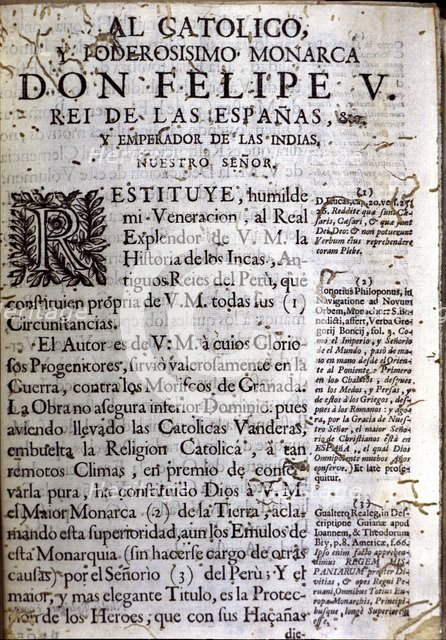 AL CATOLICO,
Y PODEROSISIMO MONARCA
DON FELIPE V.
REI DE LAS ESPAÑAS, &c.
Y EMPERADOR DE LAS INDIAS,
NUESTRO SEÑOR.
RESTITUYE, humilde
mi Veneracion, al Real
Explendor de V. M. la
Historia de los Incas, An-
tiguos Reies del Perù, que
constituien propria de V. M. todas sus (1)
Circunstancias.
El Autor es de V. M. à cuios Glorio-
sos Progenitores, sirviò valerosamente en la
Guerra, contra los Moriscos de Granada.
La Obra no asegura inferior Dominio: pues
aviendo llevado las Catolicas Vanderas,
embuelta la Religion Catolica, à tan
remotos Climas, en premio de conser-
varla pura, ha constituido Dios à V. M.
el Maior Monarca (2) de la Tierra, acla-
mando esta superioridad, aun los Emulos de
esta Monarquia (sin hacerse cargo de otras
causas) por el Señorio (3) del Perù: Y el
maior, y mas elegante Titulo, es la Protec-
cion de los Heroes, que con sus Haçañas
die-
(1)
D. Lucas, cap. 20. vers. 25.
26. Reddite quæ sunt Cæ-
saris, Cæsari, & quæ sunt
Dei, Deo: & non potuerunt
Verbum eius reprehendere
coram Plebe.
(2)
Honorius Philoponus, in
Navigatione ad Novum
Orbem, Monachor. S. Be-
nedicti, affert, Verba Gre-
gorij Boncij, fol. 3. Co-
mo el Imperio, y Señorio
de el Mundo, pasò de ma-
no en mano desde el Orien-
te al Poniente: Primero
en los Caldeos, despues
en los Medos, y Persas, y
de estos à los Griegos, des-
pues à los Romanos: y ago-
ra, por la Gracia de Nues-
tro Señor, el maior Señorio
de Christianos està en
ESPAÑA, el qual Dios
Omnipotente muchos Años
conserve. Et late prose-
quitur.
(3)
Gualtero Realeg, in Des-
criptione Guianæ apud
Ioannem, & Theodorum
Bry, p. 8. America,
Ipso enim facto apprehen-
dimus REGEM HIS-
PANIARUM propter Di-
vitias, & opes Regni Pe-
ruani, Omnibus Totius Eu-
ropæ Monarchis, Principi-
busque, longè Superiorem